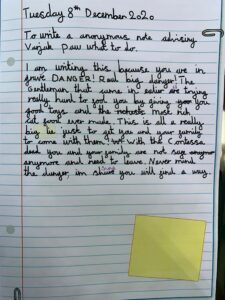 Tuesday 8th December 2020
To write a anonymous note advising
Varjak Paw what to do.
I am writing this because you are in
grave DANGER! Real big danger! The
Gentleman that came in earlier are trying
really hard to fool you by giving you
good toys and the richests most rich
cat food ever made. This is all a really
big lie just to get you and your family
to come with them! With the Contessa
dead you and your family are not safe
anymore and need to leave. Never mind
the danger im sure you will find a way.